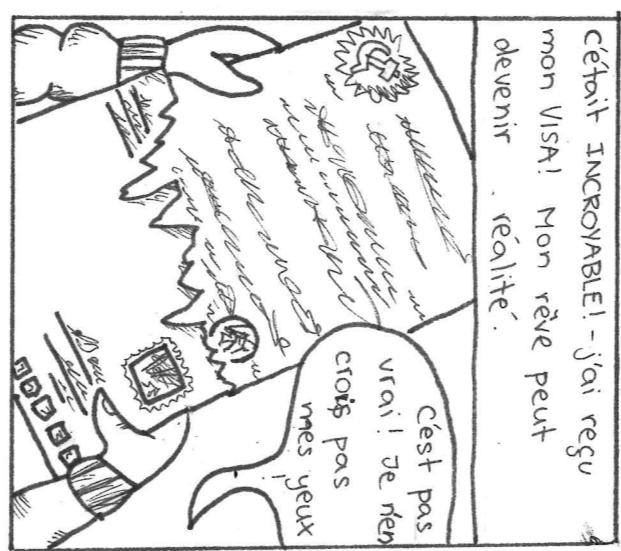 c'était INCROYABLE! - j'ai reçu
mon VISA! Mon rêve peut
devenir réalité.
C'est pas
vrai! Je n'en
crois pas
mes yeux!